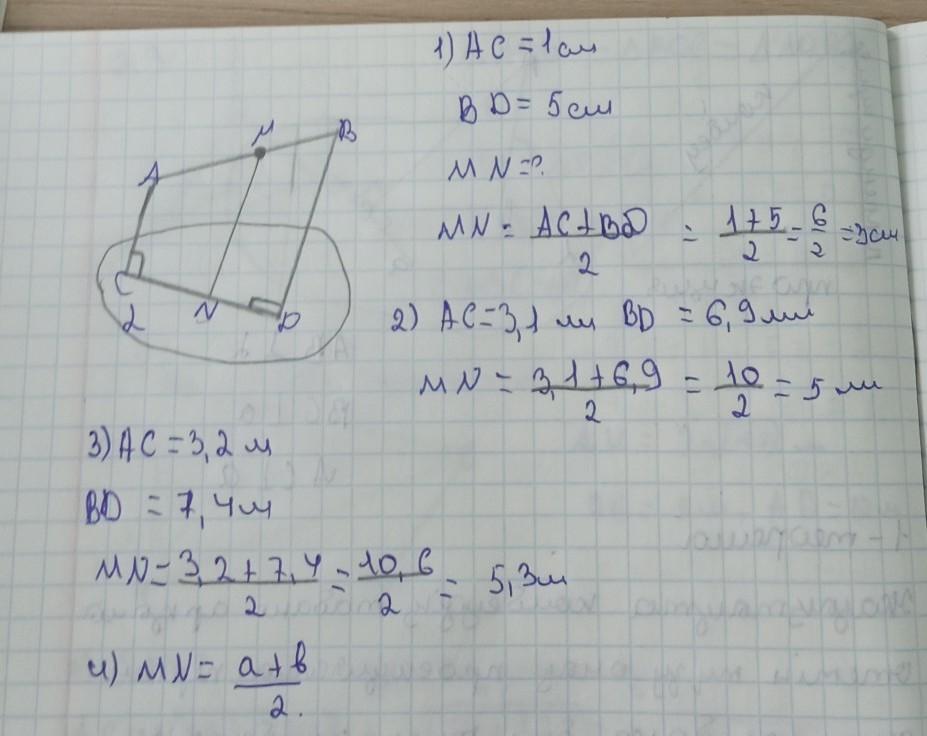 1) AC = 1 см
BD = 5 см
MN = ?
MN = AC+BD / 2 = 1+5 / 2 = 6 / 2 = 3 см
A
M
B
C
N
D
α
2) AC = 3,1 мм BD = 6,9 мм
MN = 3,1+6,9 / 2 = 10 / 2 = 5 мм
3) AC = 3,2 м
BD = 7,4 м
MN = 3,2+7,4 / 2 = 10,6 / 2 = 5,3 м
4) MN = a+b / 2.